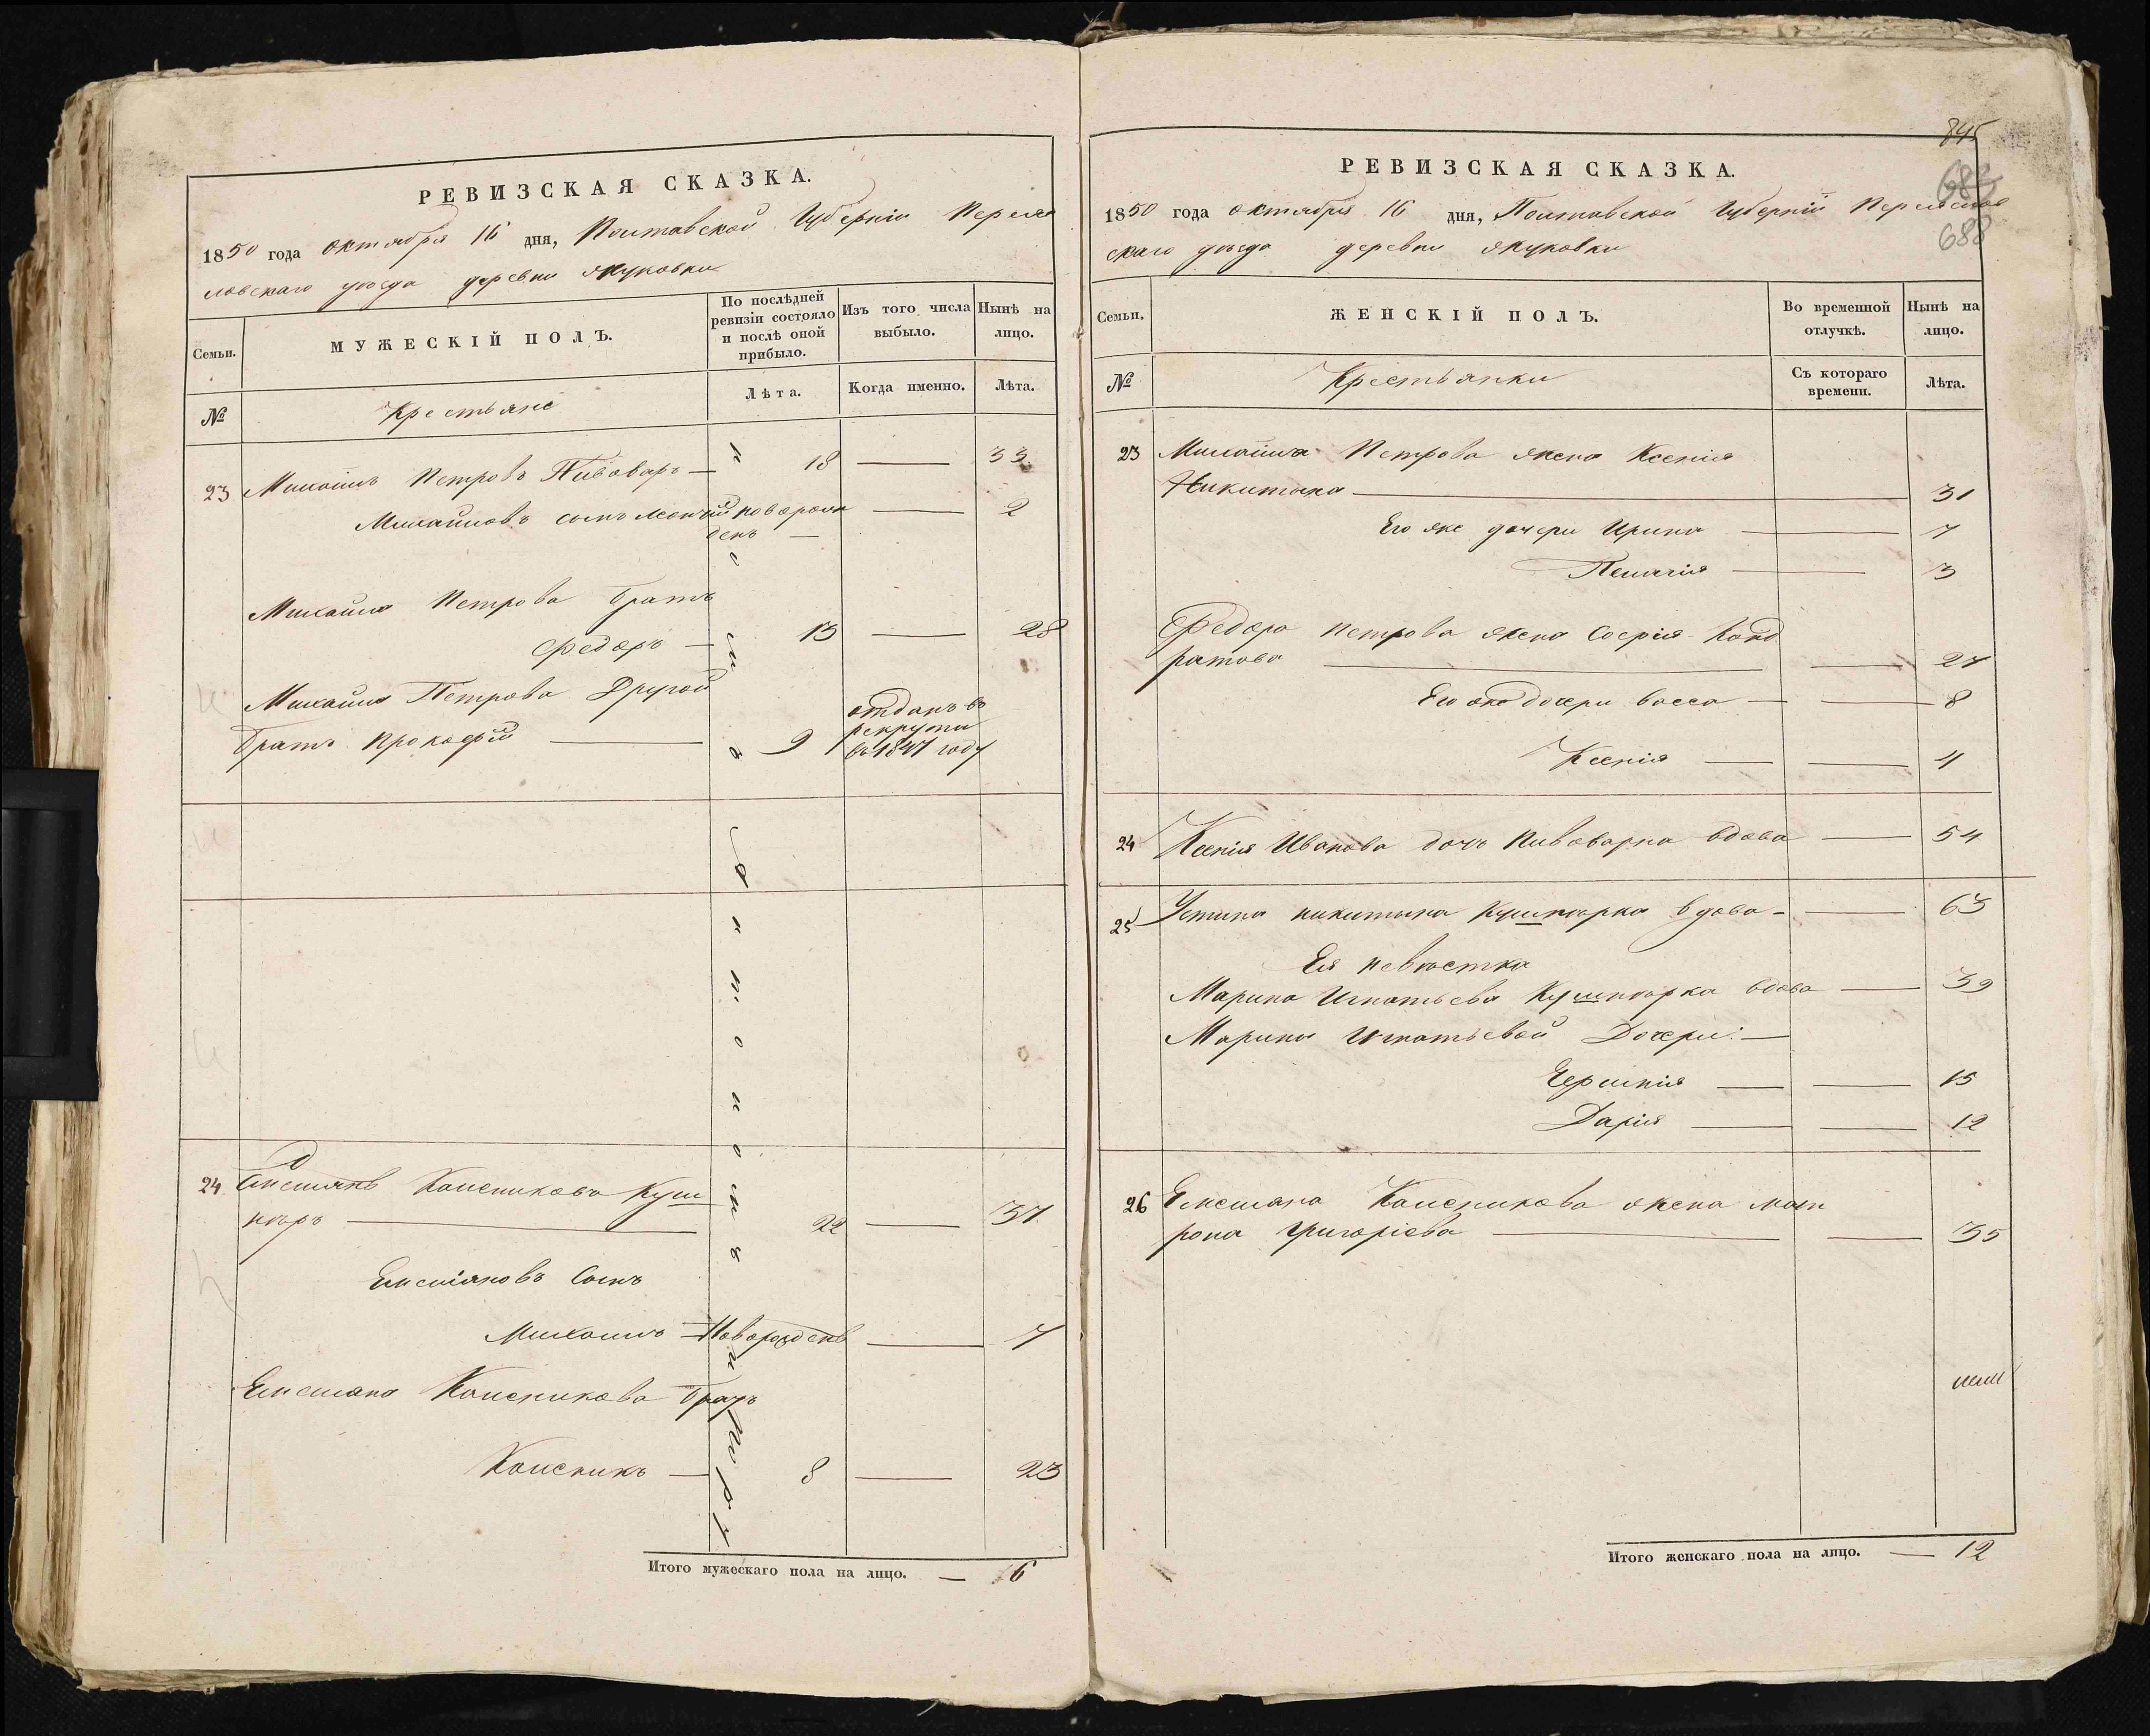 РЕВИЗСКАЯ СКАЗКА.
1850 года октября 16 дня, Полтавской Губерніи Переяс
ловскаго уѣзда деревни Якуковки
Семьи.
МУЖЕСКІЙ ПОЛЪ.
По послѣдней ревизіи состояло и послѣ оной прибыло.
Изъ того числа выбыло.
Нынѣ на лицо.
№
Крестьяне
Лѣта.
Когда именно.
Лѣта.
23 Михаилъ Петровъ Пивоваръ — 18 — 33
Михайловъ сынъ новорож — 2
денъ —
Михаила Петрова братъ
Федоръ — 13 — 28
Михаила Петрова Другой
братъ Прокофій — 9
отданъ въ
рекруты
въ 1847 году
24 Емельянъ Калениковъ Куш
нѣръ — 22 — 37
Емельяновъ Сынъ
Михаилъ — Новорожденъ — 7
Емельяна Каленикова братъ
Каленикъ — 8 — 23
Итого мужескаго пола на лицо. — 6
845
688
РЕВИЗСКАЯ СКАЗКА.
1850 года октября 16 дня, Полтавской Губерніи Переяслов
скаго уѣзда деревни Якуковки
Семьи.
ЖЕНСКІЙ ПОЛЪ.
Во временной отлучкѣ.
Нынѣ на лицо.
№
Крестьянки
Съ котораго времени.
Лѣта.
23 Михаила Петрова жена Ксенія
Никитина — 31
Его же дочери Ирина — 7
Пелагія — 3
Федора Петрова жена Софія Конд
ратова — 27
Его же дочери Васса — 8
Ксенія — 4
24 Ксенія Иванова дочь Пивоварка вдова — 54
25 Устина Никитина Кушнѣрка вдова — 63
Ея невѣстка
Марина Игнатьева Кушнѣрка вдова — 39
Марины Игнатьевой Дочери: —
— 15
Дарія — 12
26 Емельяна Каленикова жена Мат
рона Григоріева — 35
Итого женскаго пола на лицо. — 12